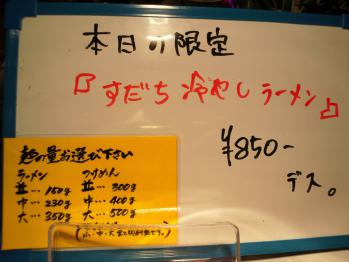 本日の限定
『すだち冷やしラーメン』
¥850-
デス。
麺の量お選び下さい
ラーメン つけめん
並…150g 並…300g
中…230g 中…400g
大…350g 大…500g